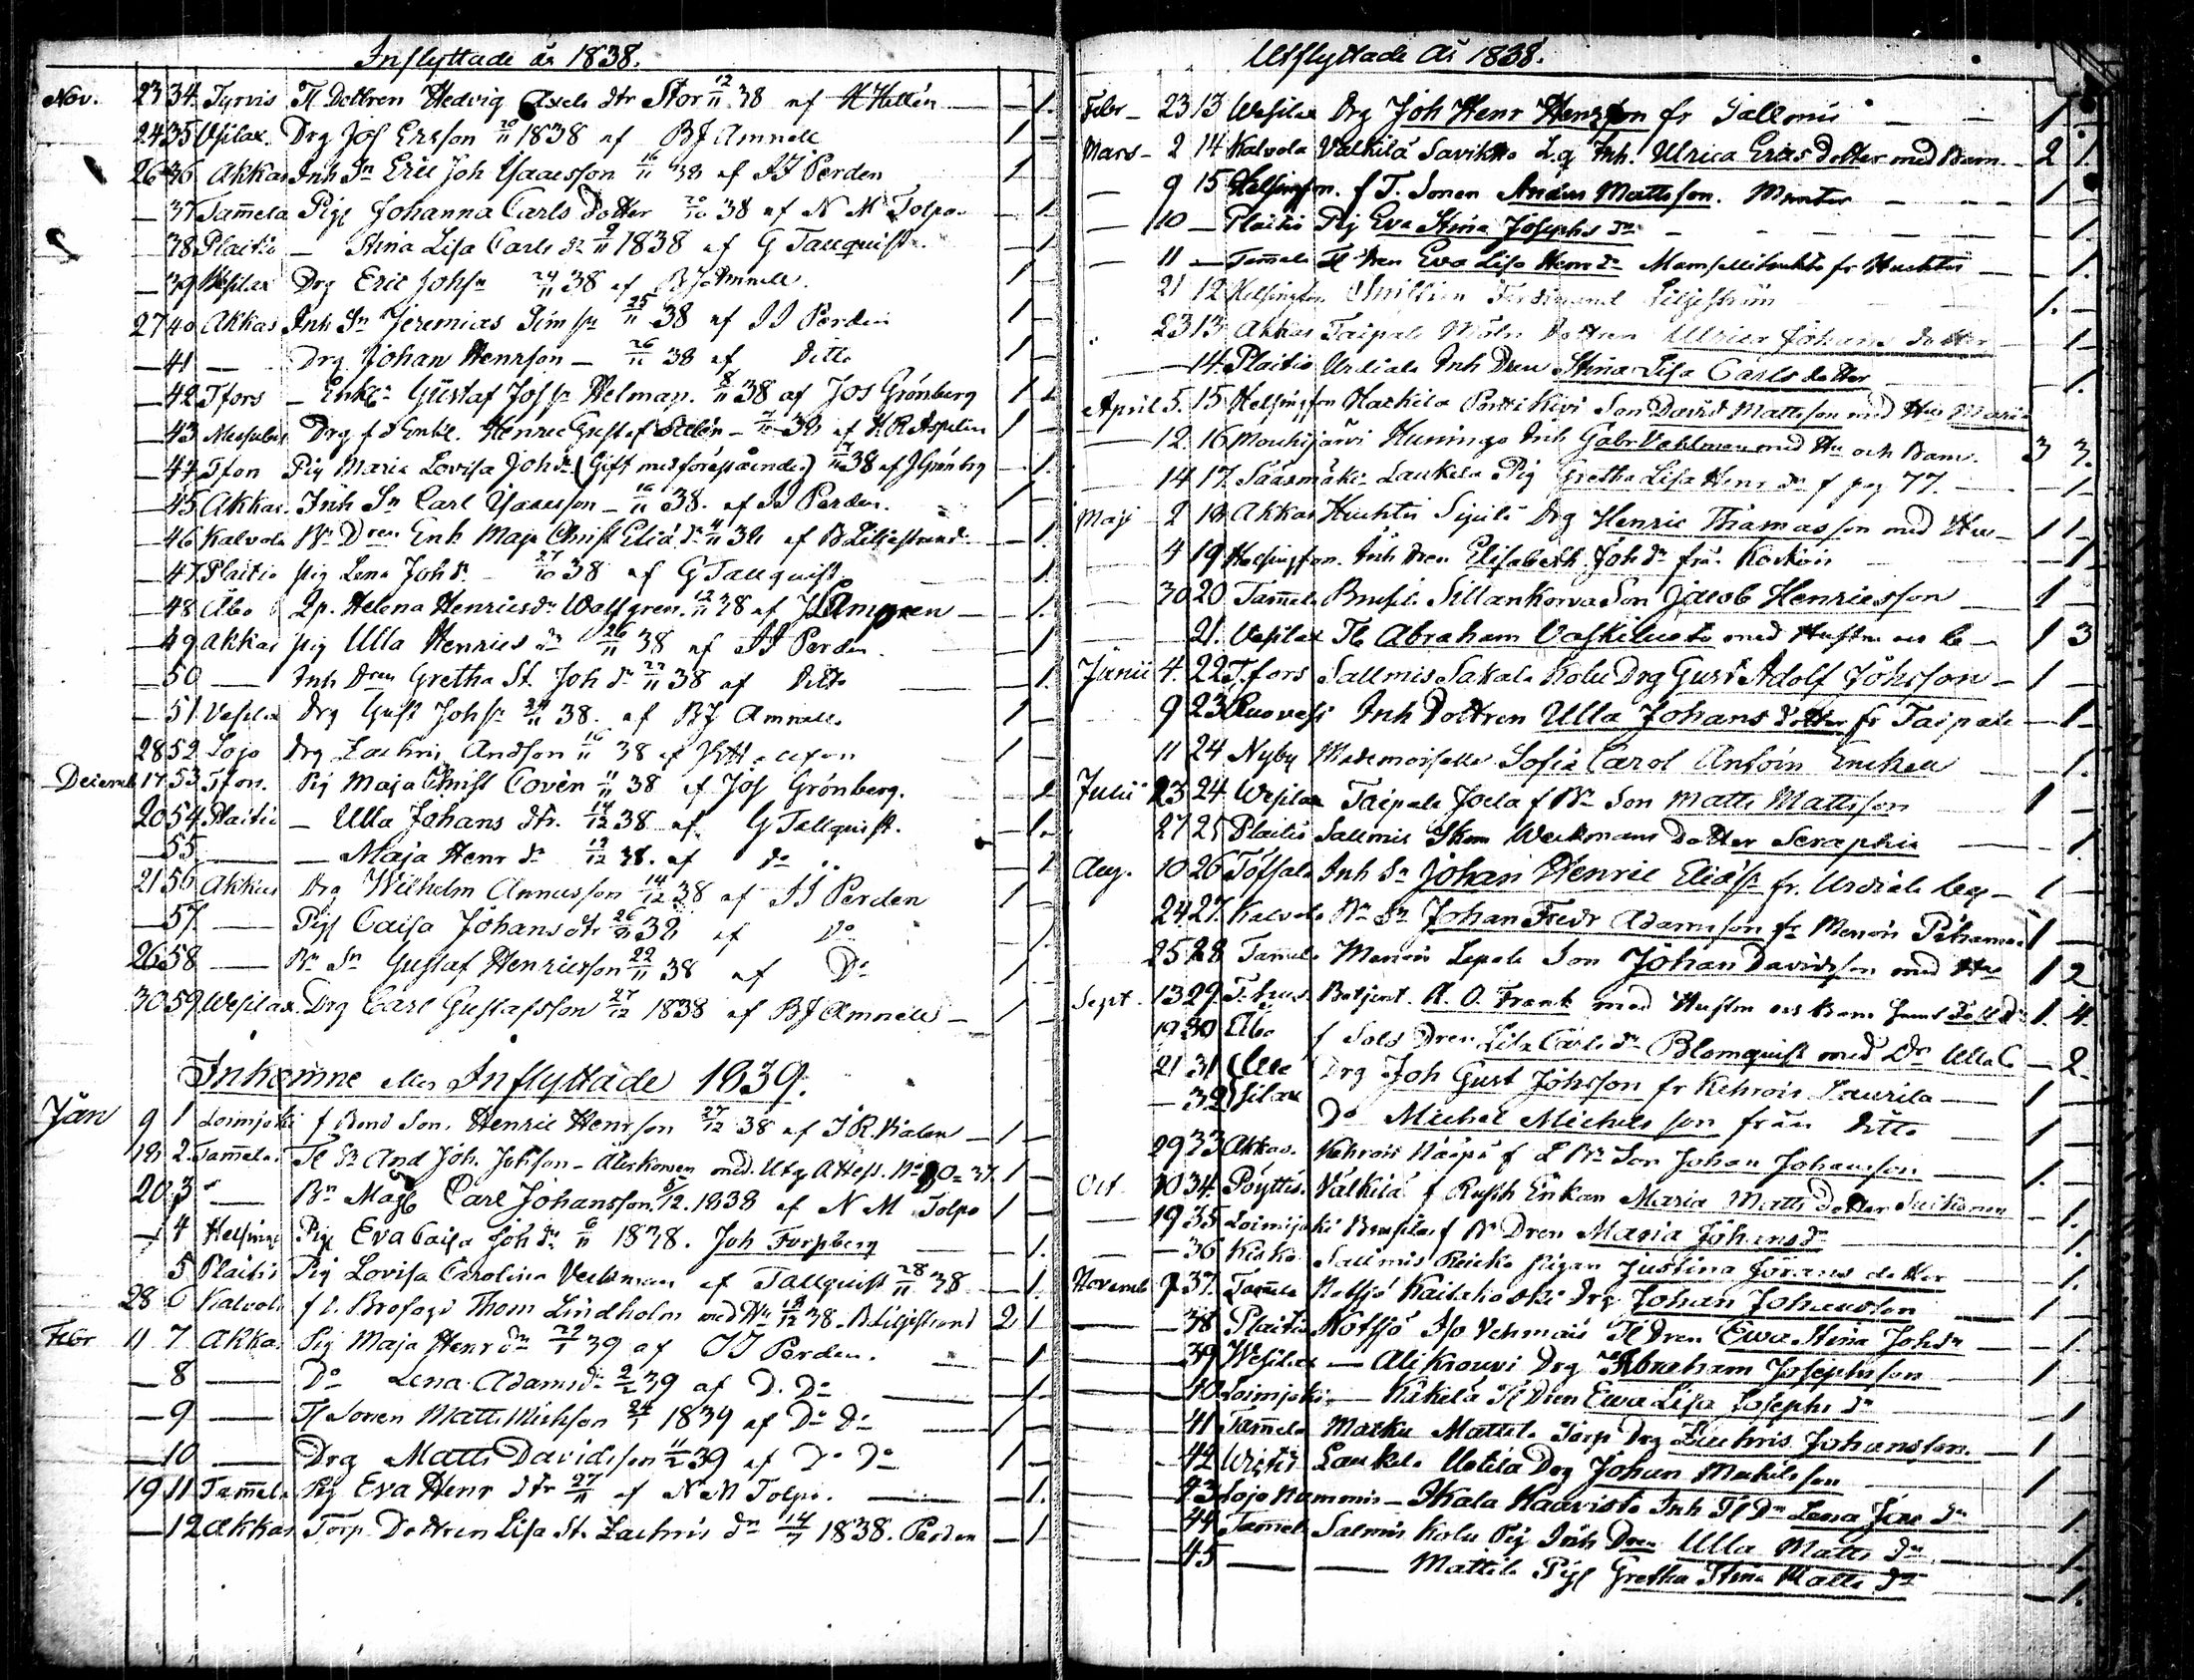 Inflyttade år 1838.
Nov. 23 34. Tyrvis Tl Dottren Hedvig Axels dtr Stor 12/11 38 af H Hellén — 1.
24 35 Vesilax. Drg Jos Ersson 20/11 1838 af BJ Amnell 1 —
26 36 Akkas Inh Sn Eric Joh Isaacsson 16/11 38 af IJ Perden 1
— 37 Tam̄ela Pig Johanna Carls Dotter 20/10 38 af N M Tolpo — 1.
— 38 Plaitis — Stina Lisa Carls dr 9/11 1838 af G Tallquist — 1.
— 39 Wesilax Drg Eric Johsn 24/11 38 af BJ Amnell. 1 —
27 40 Akkas Inh Sn Jeremias Simsn 25/11 38 af IJ Perden 1 —
— 41 — Drg Johan Henrson — 26/11 38 af Ditto 1 —
— 42 Tfors — Gustaf Jossn Helman. 8/11 38 af Jos Grönberg 1
— 43 Drg f d Enkl. Henric Gustaf 38 af H R Aspelin 1 —
— 44 Tfors Pig Maria Lovisa Joh dr (Gift med föregående) 38 af J Grönberg — 1.
— 45 Akkas. Inh Sn Carl Isaacsson — 16/11 38. af IJ Perden. 1 —
— 46 Kalvola Bn Dren Enh Maja Christ Eliæ dr 4/11 38 af B Liljestrand — 1.
— 47 Plaitis pig Lena Joh dr — 27/10 38 af G Tallquist — 1.
— 48 Åbo Helena Henrics dr Wallgren. 12/11 38 af — 1.
— 49 Akkas pig Ulla Henrics dr 26/11 38 af IJ Perden. — 1
— 50 — Inh Dren Gretha St. Joh dr 27/11 38 af Ditto — 1.
— 51 Vesilax Drg Gust Johsn 24/11 38. af BJ Amnell 1 —
28 52 Lojo Drg Zachris Andson 16/11 38 af 1 —
Decemb 17 53 Tfors. Pig Maja Christ Covén 11/11 38 af Jos Grönberg. — 1
20 54 Plaitis — Ulla Johans dtr. 14/12 38 af G Tallquist. — 1.
— 55 — — Maja Henr dr 19/12 38. af do — 1
21 56 Akkas Drg Wilhelm Annusson 14/12 38 af IJ Perden 1 —
— 57. — Pig Caisa Johans dtr 26/11 38 af Do — 1.
26 58 — Bn Sn Gustaf Henricsson 22/11 38 af Do 1 —
30 59 Wesilax. Drg Carl Gustafsson 27/12 1838 af BJ Amnell — 1 —
Inkomne eller Inflyttade 1839.
Jan 9 1 Loimjoki f Bond Son. Henric Henrsson 27/12 38 af J R. — 1 —
18 2. Tam̄ela. Tl Sn And Joh. Johsson med Utg Attest. No 30=37 1 —
20 3 — Bn Mag Carl Johansson 5/12. 1838 af N M Tolpo 1 —
— 4 Helsinge Pig Eva Caisa Joh dr 6/11 1838. Joh Forsberg — 1.
5 Plaitis Pig Lovisa Carolina Veckman af Tallquist 28/11 38 — 1.
28 6 Kalvola Thom Lindholm med Hu 19/12 38. B Liljestrand 2 1
Febr 11 7 Akka. Pig Maja Henr dr 29/1 39 af IJ Perden. — 1
— 8 — Do Lena Adams dr 2/2 39 af D. Do — 1.
— 9 — Tl Sonen Matts Michsson 24/1 1839 af Do Do 1 —
— 10 — Drg Matts Davidsson 11/2 39 af Do Do 1 —
19 11 Tam̄ela Pig Eva Henr dtr 27/11 af N M Tolpo. — 1.
— 12 Akkas Torp Dottren Lisa St. Zachris dr 14/7 1838. Perden — 1
Utflyttade År 1838.
Febr — 23 13 Wesilax Drg Joh Henr Henrsson fr Sallmis — 1
Mars — 2 14 Kalvola Välkilä Savikko Inh. Ulrica Erics Dotter med Barn — 2 1.
— 9 15 Helsingfors. f T. Sonen Anders Mattsson. 1 —
— 10 — Plaitis Pig Eva Stina Josephs dr — 1.
— 11 — Tam̄ela Tl Dren Eva Lisa Henr dr fr Huhtis — 1.
21 12 Helsingfors Ferdinand Liljeström 1. —
23 13 Akkas Taipale Dottren Ulrica Johans dotter — 1
— 14 Plaitis Urdiala Inh Dren Stina Lisa Carls dotter — 1.
April 5. 15 Helsingfors Hakkila Porttikivi Son David Mattsson med Hus Maria
— 12. 16 Mouhijärvi Huningo Inh Gabr Vahlman med Hu och Barn. 3 3.
— 14 17. Säärmäki Laukela Pig Gretha Lisa Henr dr f pag 77. — 1
Maji 2 18 Akkas Huhtis Sipilä Drg Henric Thomasson med Hus — 1 1
— 4 19 Helsingfors. Inh Dren Elisabeth Joh dr från Korkois — 1
— 30 20 Tam̄ela Sillankorva Son Jacob Henricsson 1 —
— 21. Vesilax Tl Abraham Vaskiluoto med Hustru 1 3
Junii 4. 22 Tfors Sallmis Sakala Kolu Drg Gust Adolf Johsson — 1 —
9 23 Ruovesi Inh Dottren Ulla Johans dotter fr Taipale — 1
11 24 Nyby Mademoiselle Sofia Carol Antoin — 1.
Julii 23 24 Wesilax Taipale Jaela f Bn Son Matts Mattsson 1 —
27 25 Plaitis Sallmis Weckmans Dotter Seraphia — 1
Aug. 10 26 Töfsala Inh Sn Johan Henric Eliæsn fr. Urdiala 1 —
24 27 Kalvola Bn Sn Johan Fredr Adamsson fr 1 —
25 28 Tam̄ela Lepola Son Johan Davidsson med Hus 1 2
Sept. 13 29 T.hus. Betjent. A. O. Frank med Hustru och Barn 1. 4.
19 30 Åbo f Sold Dren Carls dr Blomquist med Dr Ulla C — 2
21 31 Drg Joh Gust Johsson fr Kehrois Laurila 1 —
— 32 Vesilax Do Michel Michelsson från ditto 1 —
29 33 Akkas. Kehrois Son Johan Johansson 1. —
Oct. 10 34. Pöyttis. Välkilä f Enkan Maria Matts dotter — 1.
— 19 35 Loimijoki f Bn Dren Maria Johans dr — 1.
— 36 Kisko Sallmis pigan Justina Jörans dotter — 1.
Novemb 9 37. Tam̄ela Notsjö Kaitakoski Drg Johan Johansson 1 —
— 38 Plaitis Notsjö Iso Vehmais Tl Dren Ewa Stina Joh dr — 1.
— 39 Wesilax — Alikrouvi Drg Abraham Josephsson 1
— 40 Loimijoki — Tl Dren Ewa Lisa Josephs dr — 1.
— 41 Tam̄ela Matku Mattila Torp Drg Zachris Johansson. 1
— 42 Laukela Uotila Drg Johan Michelsson 1
— 43 Lojo Nummis — Ikala Haavisto Inh Tl Dr Lena — 1.
— 44 Tam̄ela Salmis Kolu Pig Inh Dren Ulla Matts dr — 1.
— 45 — — Mattila Pig Gretha Stina Matts dr — 1.